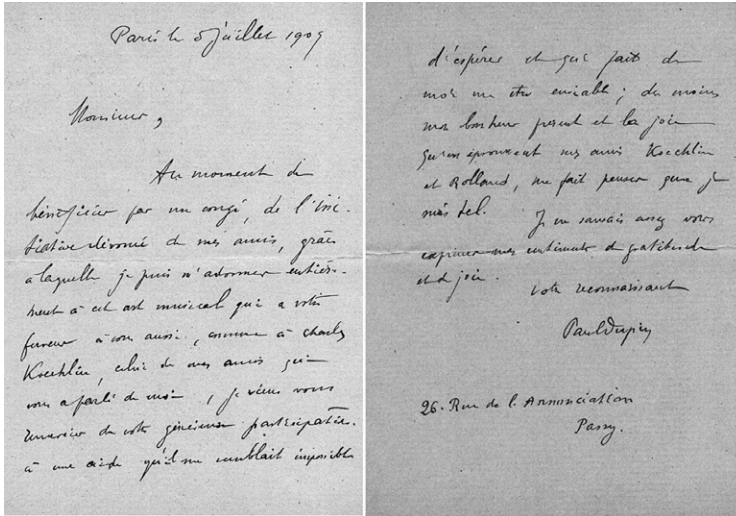 Paris le 5 juillet 1909
Monsieur,
Au moment de
bénéficier par un congé, de l'ini-
tiative dévouée de mes amis, grâce
a laquelle je puis m'adonner entière-
ment à cet art musical qui a votre
faveur à vous aussi, comme à Charles
Koechlin, celui de mes amis qui
vous a parlé de moi, je viens vous
remercier de votre généreuse participation
à une aide qu'il me semblait impossible
d'espérer et qui fait de
moi un être enviable ; du moins
mon bonheur présent et la joie
qu'en éprouvent mes amis Koechlin
et Rolland, me fait penser que je
suis tel. Je ne saurais assez vous
exprimer mes sentiments de gratitude
et de joie.
votre reconnaissant
Paul Dupin
26. Rue de l'Annonciation
Passy.